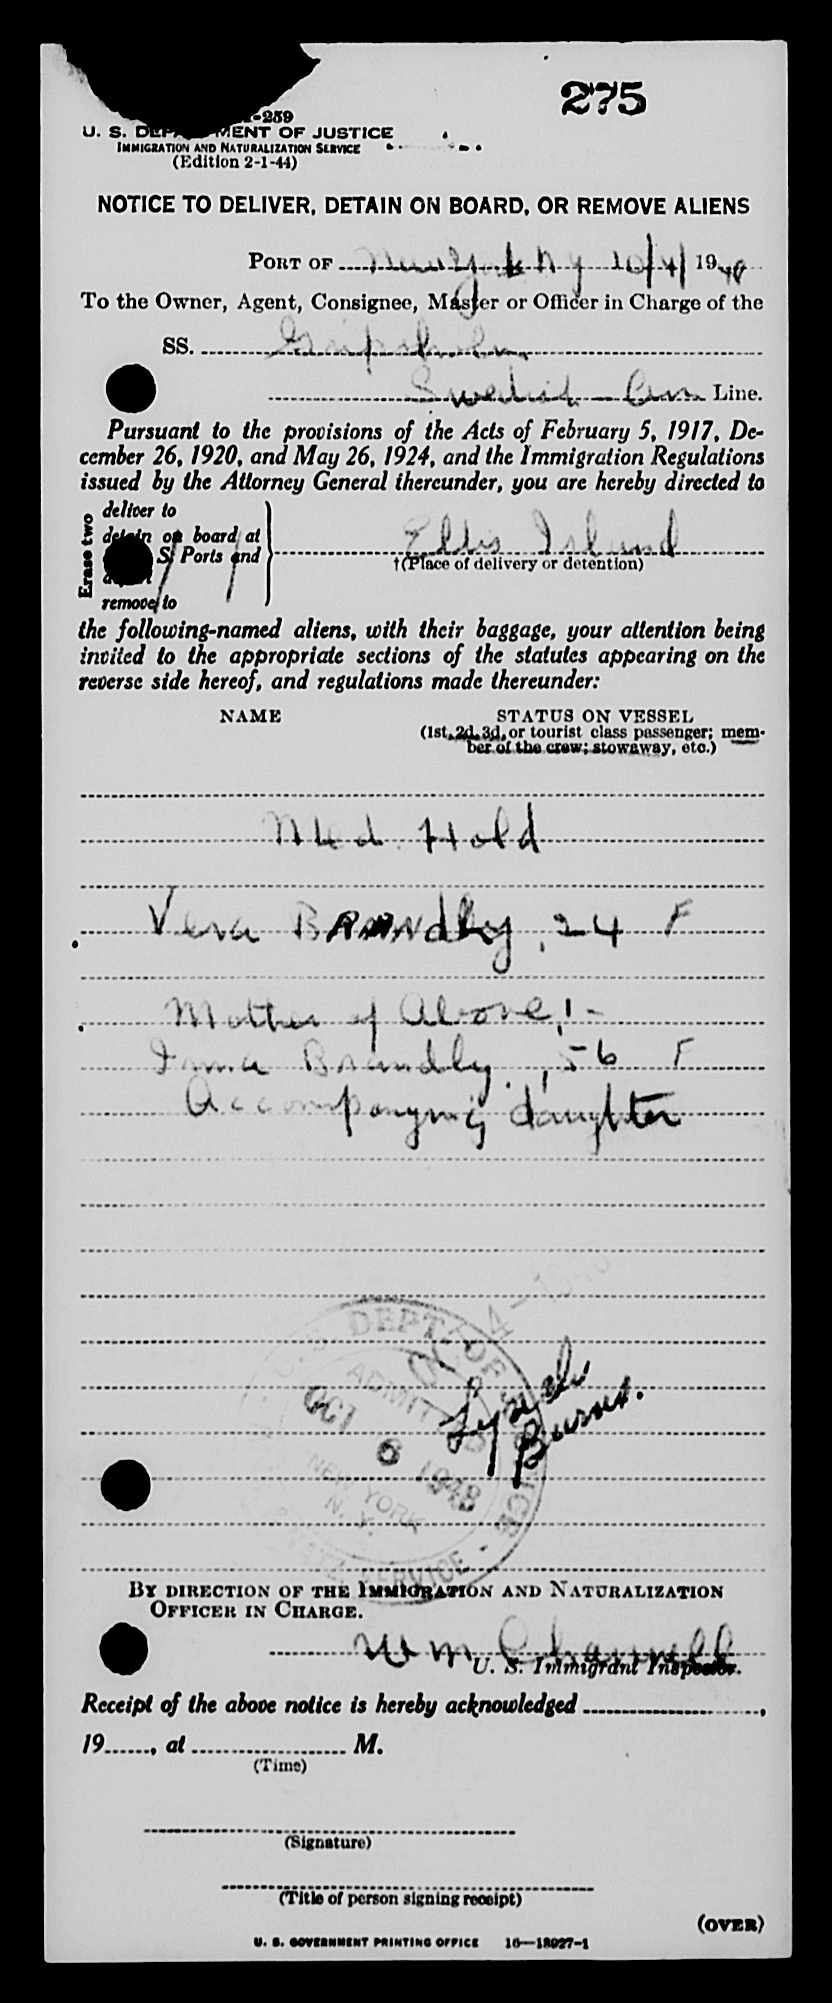 275
-259
U. S. DEPARTMENT OF JUSTICE
IMMIGRATION AND NATURALIZATION SERVICE
(Edition 2-1-44)
NOTICE TO DELIVER, DETAIN ON BOARD, OR REMOVE ALIENS
PORT OF New York N Y 10/4/ 1948
To the Owner, Agent, Consignee, Master or Officer in Charge of the
SS. Gripsholm
Swedish Am Line.
Pursuant to the provisions of the Acts of February 5, 1917, De-
cember 26, 1920, and May 26, 1924, and the Immigration Regulations
issued by the Attorney General thereunder, you are hereby directed to
Erase two
deliver to
detain on board at
S. Ports and
remove to
Ellis Island
†(Place of delivery or detention)
the following-named aliens, with their baggage, your attention being
invited to the appropriate sections of the statutes appearing on the
reverse side hereof, and regulations made thereunder:
NAME STATUS ON VESSEL
(1st, 2d, 3d, or tourist class passenger; mem-
ber of the crew; stowaway, etc.)
Med. Hold
Vera Brandly, 24 F
Mother of Above:-
Irma Brandly, 56 F
Accompanying daughter
U.S. DEPT. OF
ADMITTED
OCT 6 1948
NEW YORK
N. Y.
SERVICE
Lynch
Burns.
BY DIRECTION OF THE IMMIGRATION AND NATURALIZATION
OFFICER IN CHARGE.
Wm Channell
U. S. Immigrant Inspector.
Receipt of the above notice is hereby acknowledged ,
19 , at M.
(Time)
(Signature)
(Title of person signing receipt)
(OVER)
U. S. GOVERNMENT PRINTING OFFICE 16—18027-1